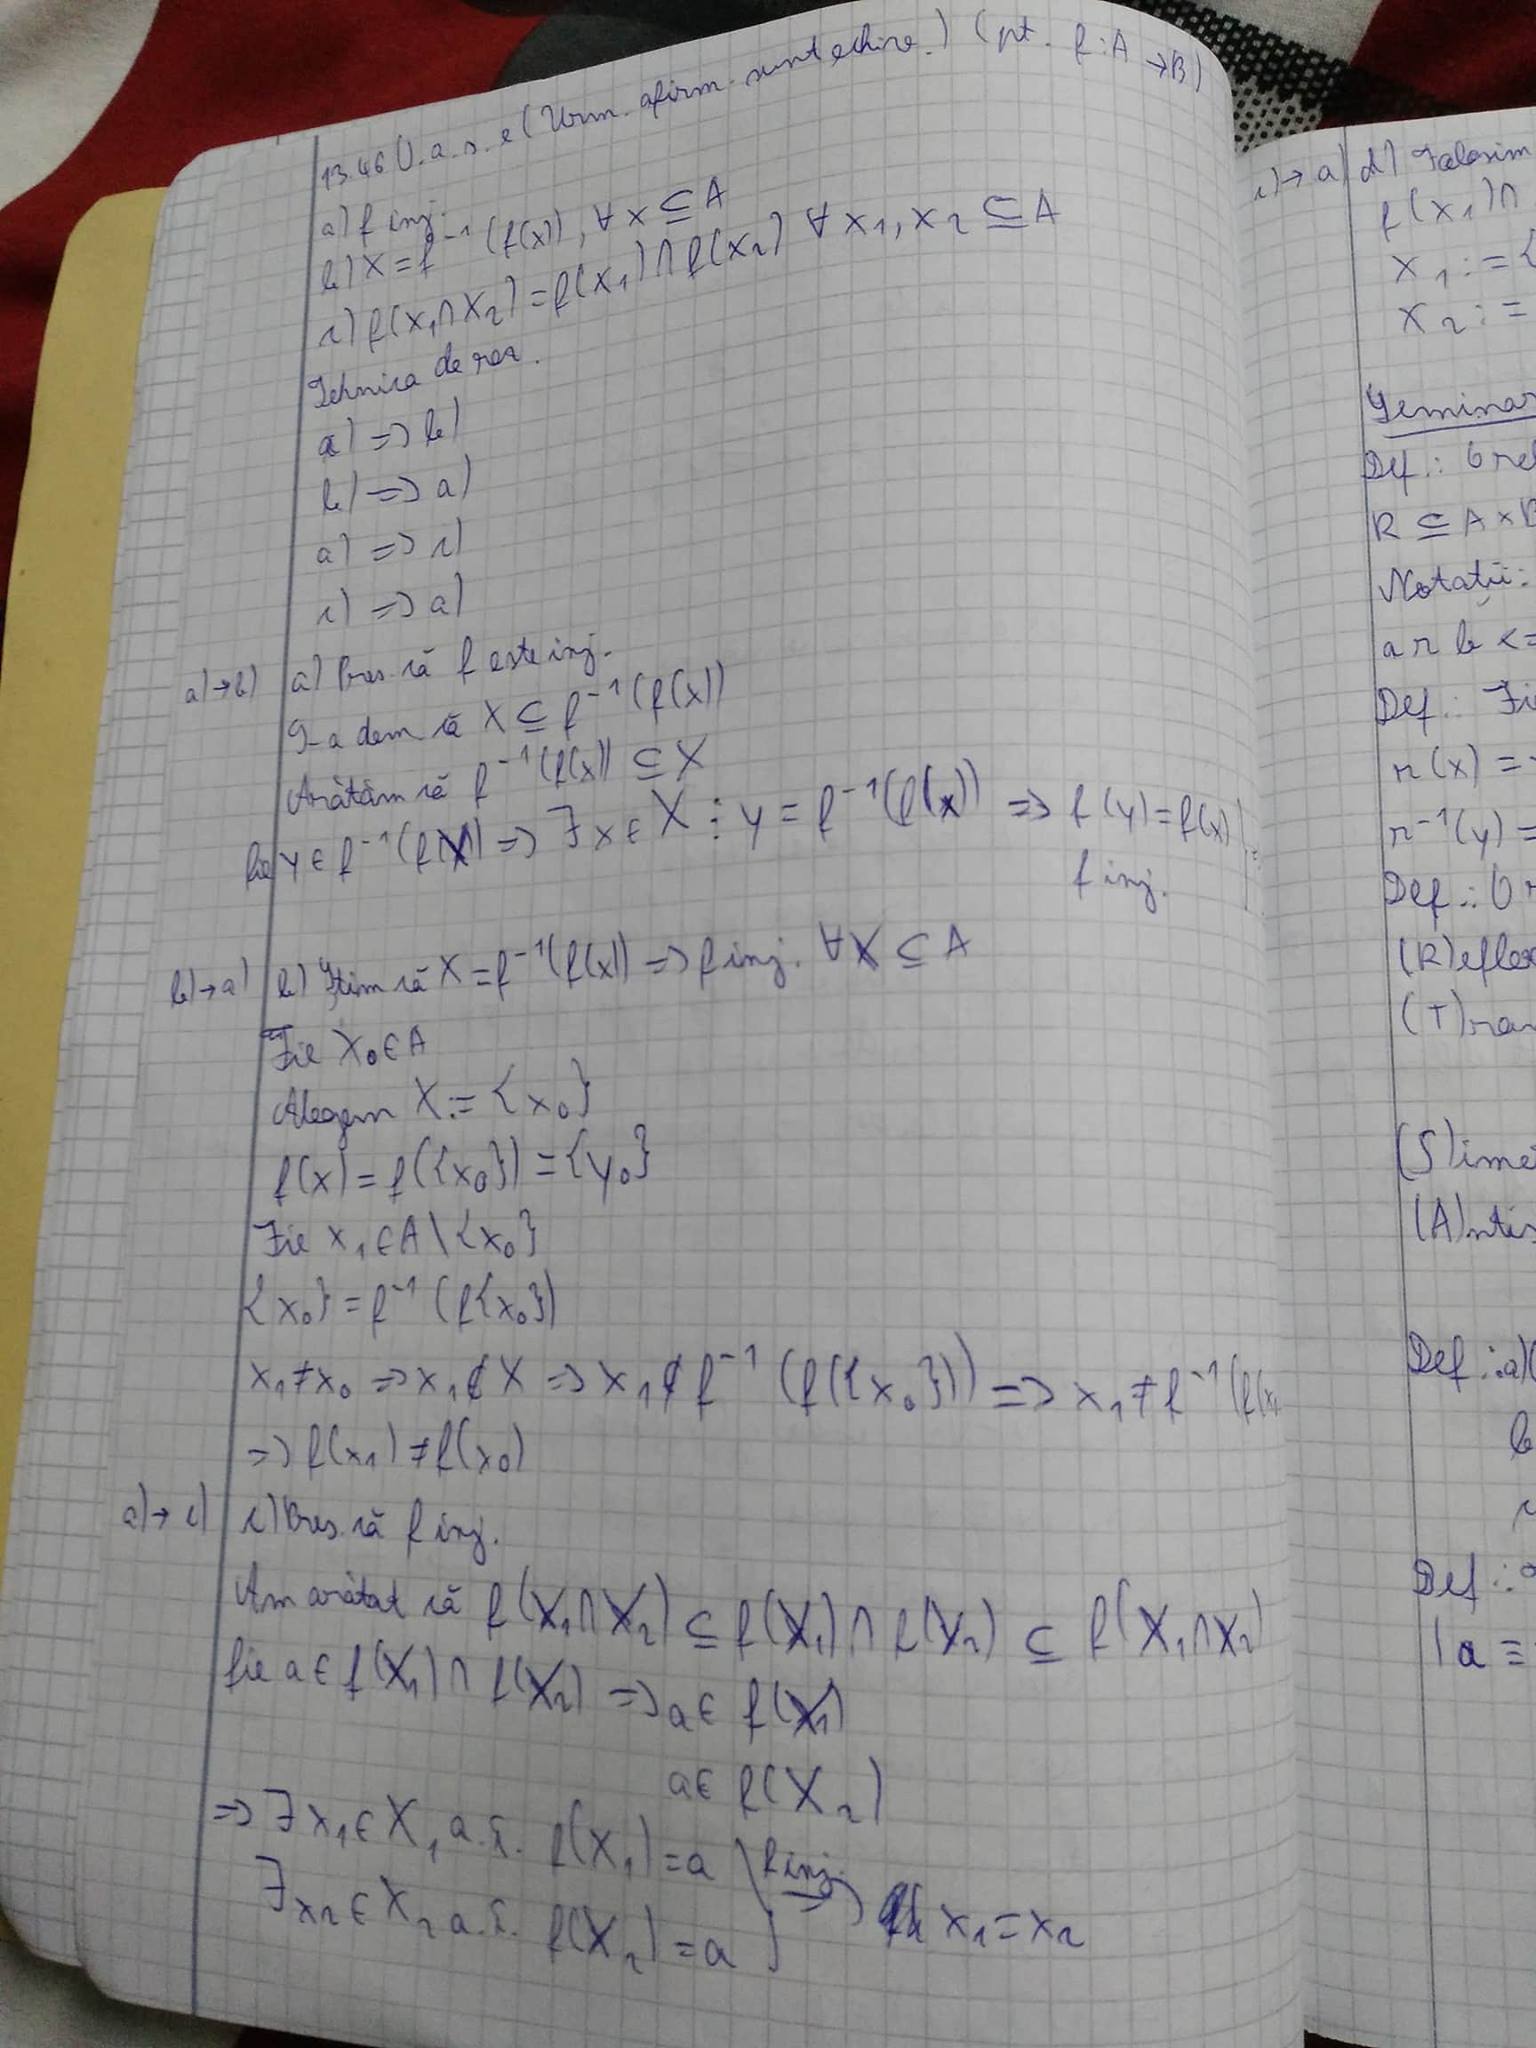 13.46 U.a.s.e (Urm. afirm. sunt echiv.) (pt. f:A→B)
a) f inj.
b) X=f⁻¹(f(X)), ∀ X ⊆ A
c) f(X₁∩X₂)=f(X₁)∩f(X₂) ∀ X₁, X₂ ⊆ A
Tehnica de rez.
a) => b)
b) => a)
a) => c)
c) => a)
a)→b) a) Pres. că f este inj.
S-a dem că X ⊆ f⁻¹(f(X))
Arătăm că f⁻¹(f(X)) ⊆ X
fie y ∈ f⁻¹(f(X)) => ∃ x ∈ X : y = f⁻¹(f(x)) => f(y)=f(x)
f inj.
b)→a) b) Știm că X=f⁻¹(f(X)) => f inj. ∀X ⊆ A
Fie x₀∈A
Alegem X:={x₀}
f(x)=f({x₀})={y₀}
Fie x₁∈A\{x₀}
{x₀}=f⁻¹(f{x₀})
x₁≠x₀ => x₁∉X => x₁∉f⁻¹(f({x₀})) => x₁≠f⁻¹(f(x
=> f(x₁)≠f(x₀)
a)→c) c) Pres. că f inj.
Am arătat că f(X₁∩X₂) ⊆ f(X₁)∩f(X₂) ⊆ f(X₁∩X₂)
fie a∈f(X₁)∩f(X₂) => a∈ f(X₁)
a∈ f(X₂)
=> ∃ x₁∈X₁ a.î. f(X₁)=a
f inj.
∃ x₂∈X₂ a.î. f(X₂)=a
x₁=x₂
c)→a) d) Folosim
f(X₁)∩
X₁:={
X₂:=
Seminar
Def.: O rel
R ⊆ A×B
Notații:
a r b <=
Def.: Fi
r(x)=
r⁻¹(y)=
Def.: O r
(R)eflex
(T)ran
(S)ime
(A)ntis
Def.: a)
b
c
Def.:
a ≡